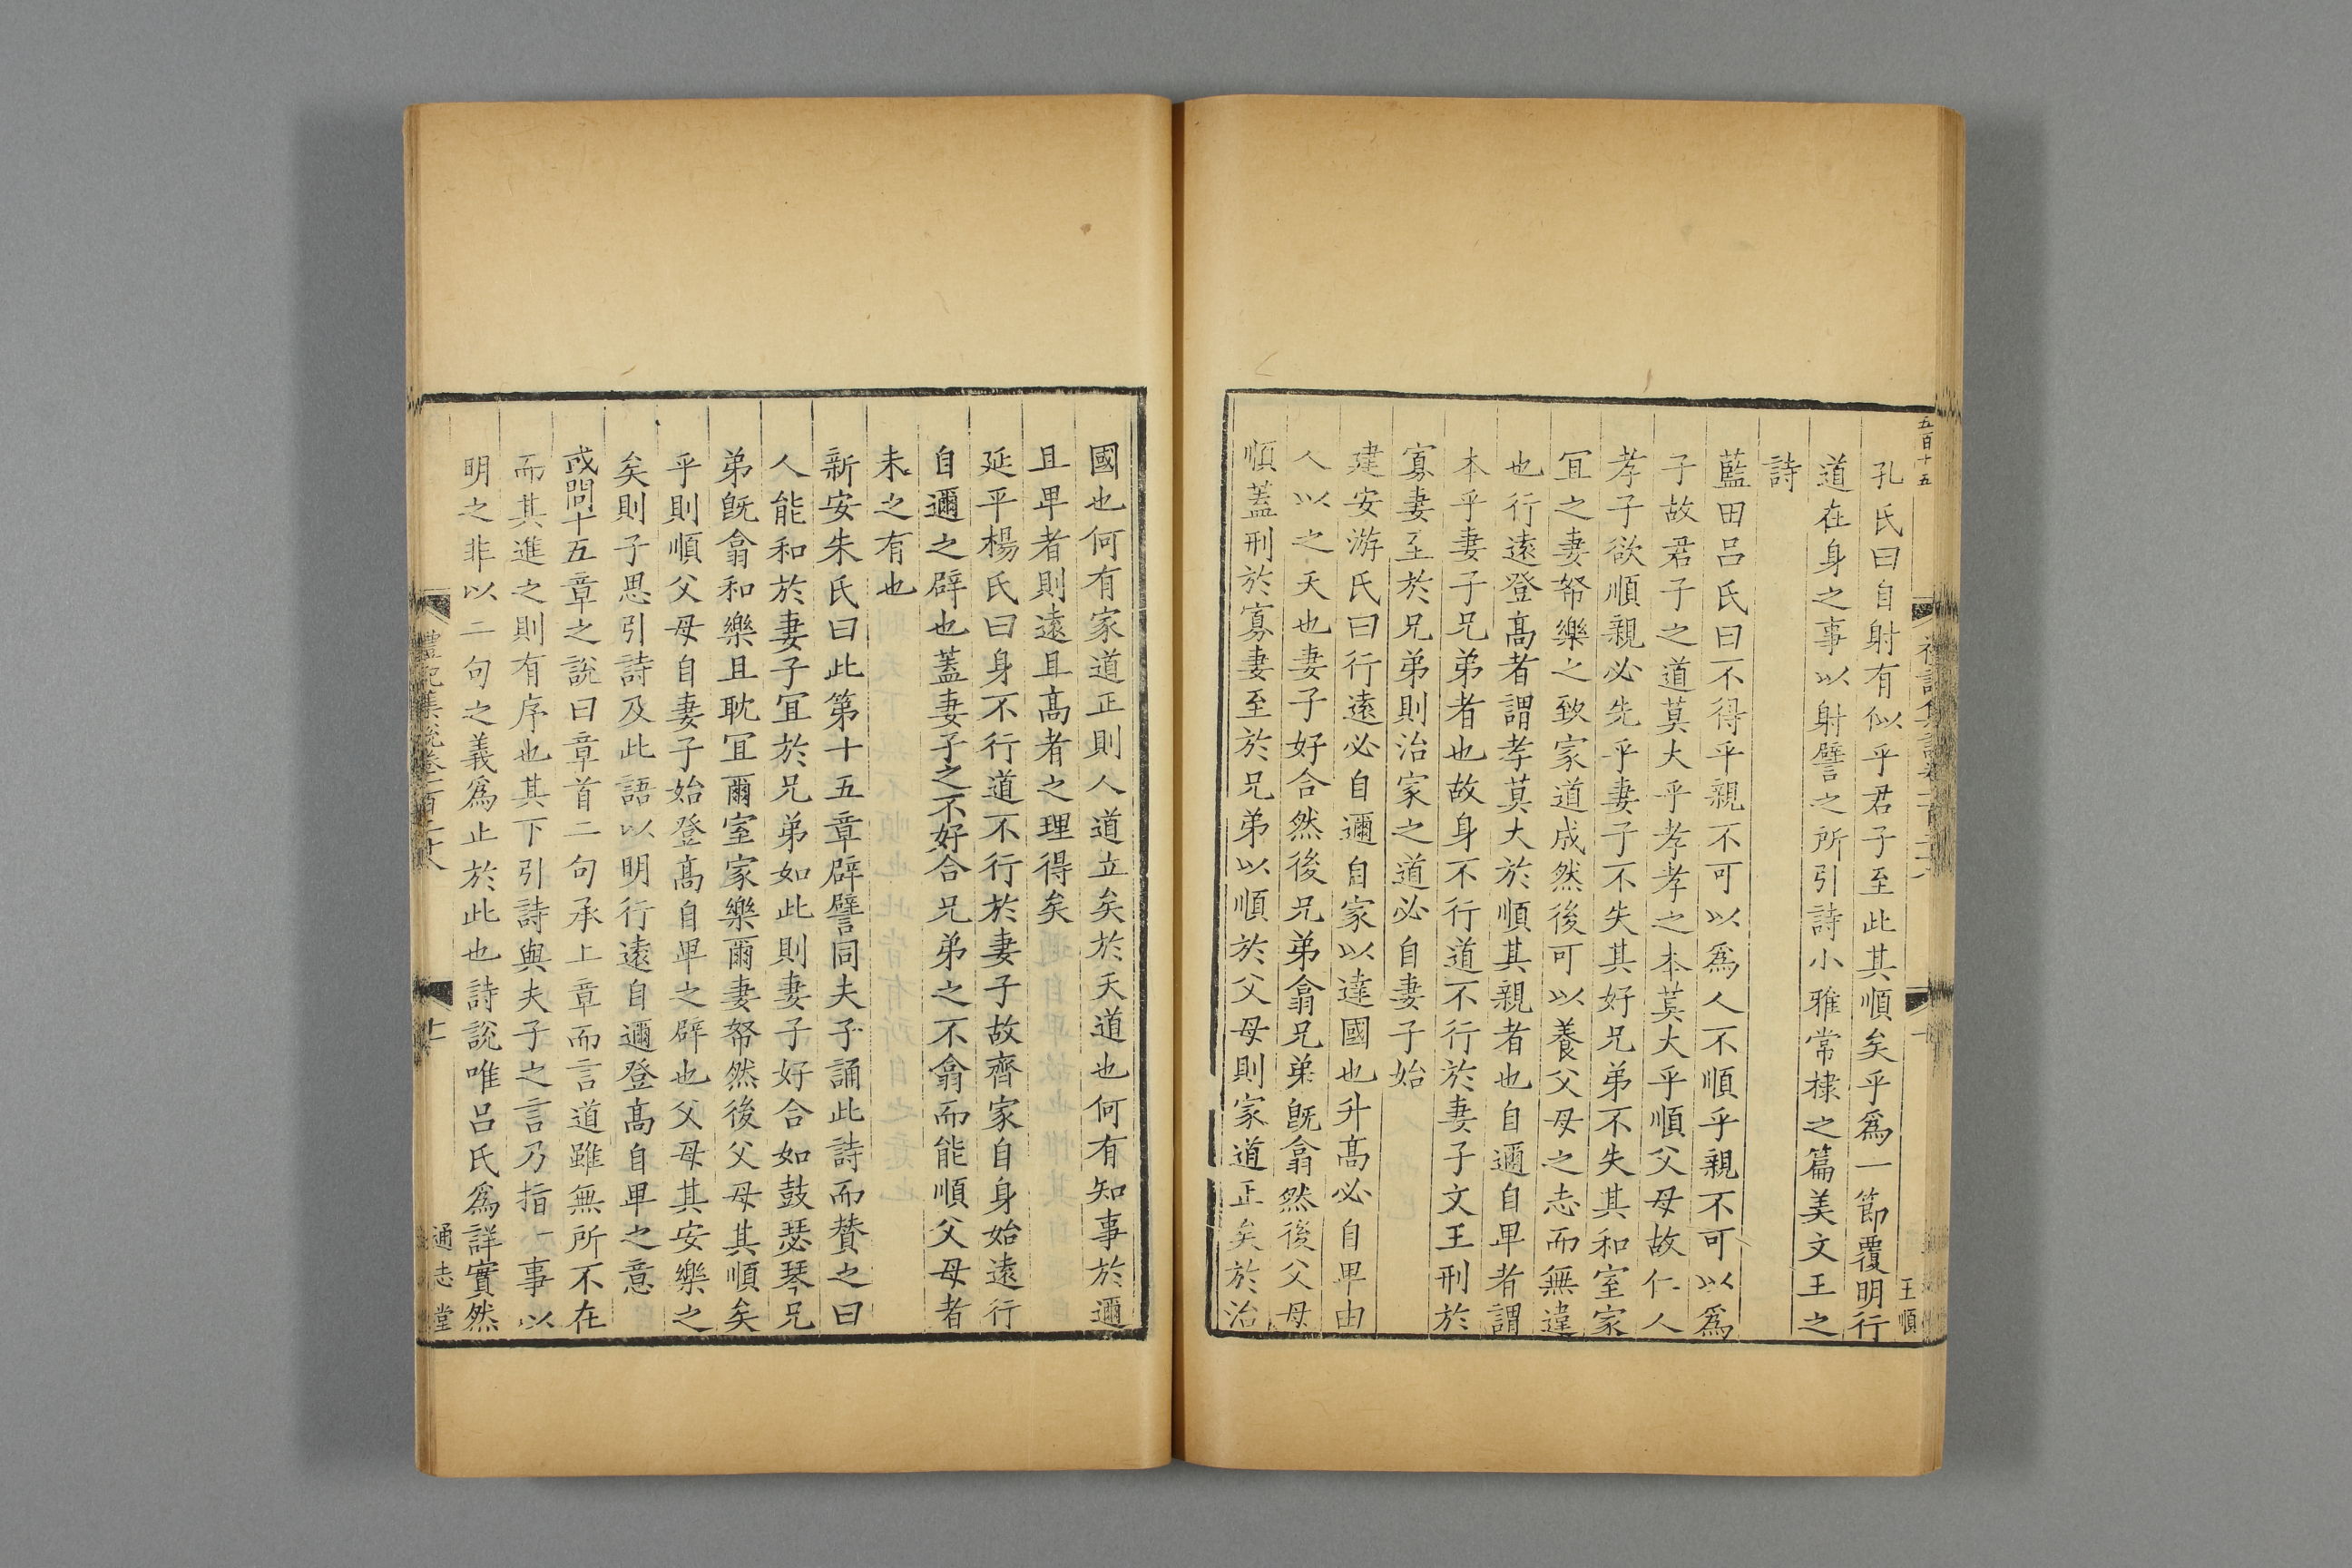 五百十五
王順
孔氏曰自射有似乎君子至此其順矣乎爲一節覆明行
道在身之事以射譬之所引詩小雅常棣之篇美文王之
詩
藍田呂氏曰不得乎親不可以爲人不順乎親不可以爲
子故君子之道莫大乎孝孝之本莫大乎順父母故仁人
孝子欲順親必先乎妻子不失其好兄弟不失其和室家
冝之妻帑樂之致家道成然後可以養父母之志而無違
也行遠登髙者謂孝莫大於順其親者也自邇自卑者謂
本乎妻子兄弟者也故身不行道不行於妻子文王刑於
寡妻至於兄弟則治家之道必自妻子始
建安游氏曰行遠必自邇自家以達國也升髙必自卑由
人以之天也妻子好合然後兄弟翕兄弟旣翕然後父母
順蓋刑於寡妻至於兄弟以順於父母則家道正矣於治
國也何有家道正則人道立矣於天道也何有知事於邇
且卑者則遠且髙者之理得矣
延平楊氏曰身不行道不行於妻子故齊家自身始遠行
自邇之辟也蓋妻子之不好合兄弟之不翕而能順父母者
未之有也
新安朱氏曰此第十五章辟譬同夫子誦此詩而賛之曰
人能和於妻子冝於兄弟如此則妻子好合如鼓瑟琴兄
弟旣翕和樂且耽冝爾室家樂爾妻帑然後父母其順矣
乎則順父母自妻子始登髙自卑之辟也父母其安樂之
矣則子思引詩及此語以明行遠自邇登髙自卑之意
或問十五章之說曰章首二句承上章而言道雖無所不在
而其進之則有序也其下引詩與夫子之言乃指一事以
明之非以二句之義爲止於此也詩說唯呂氏爲詳實然
禮記集說卷一百二十八
十一
通志堂